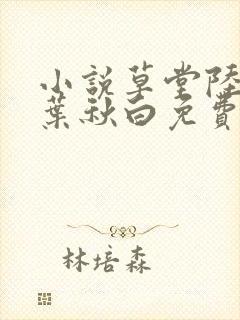 小說草堂陸
葉秋白免費
林培森